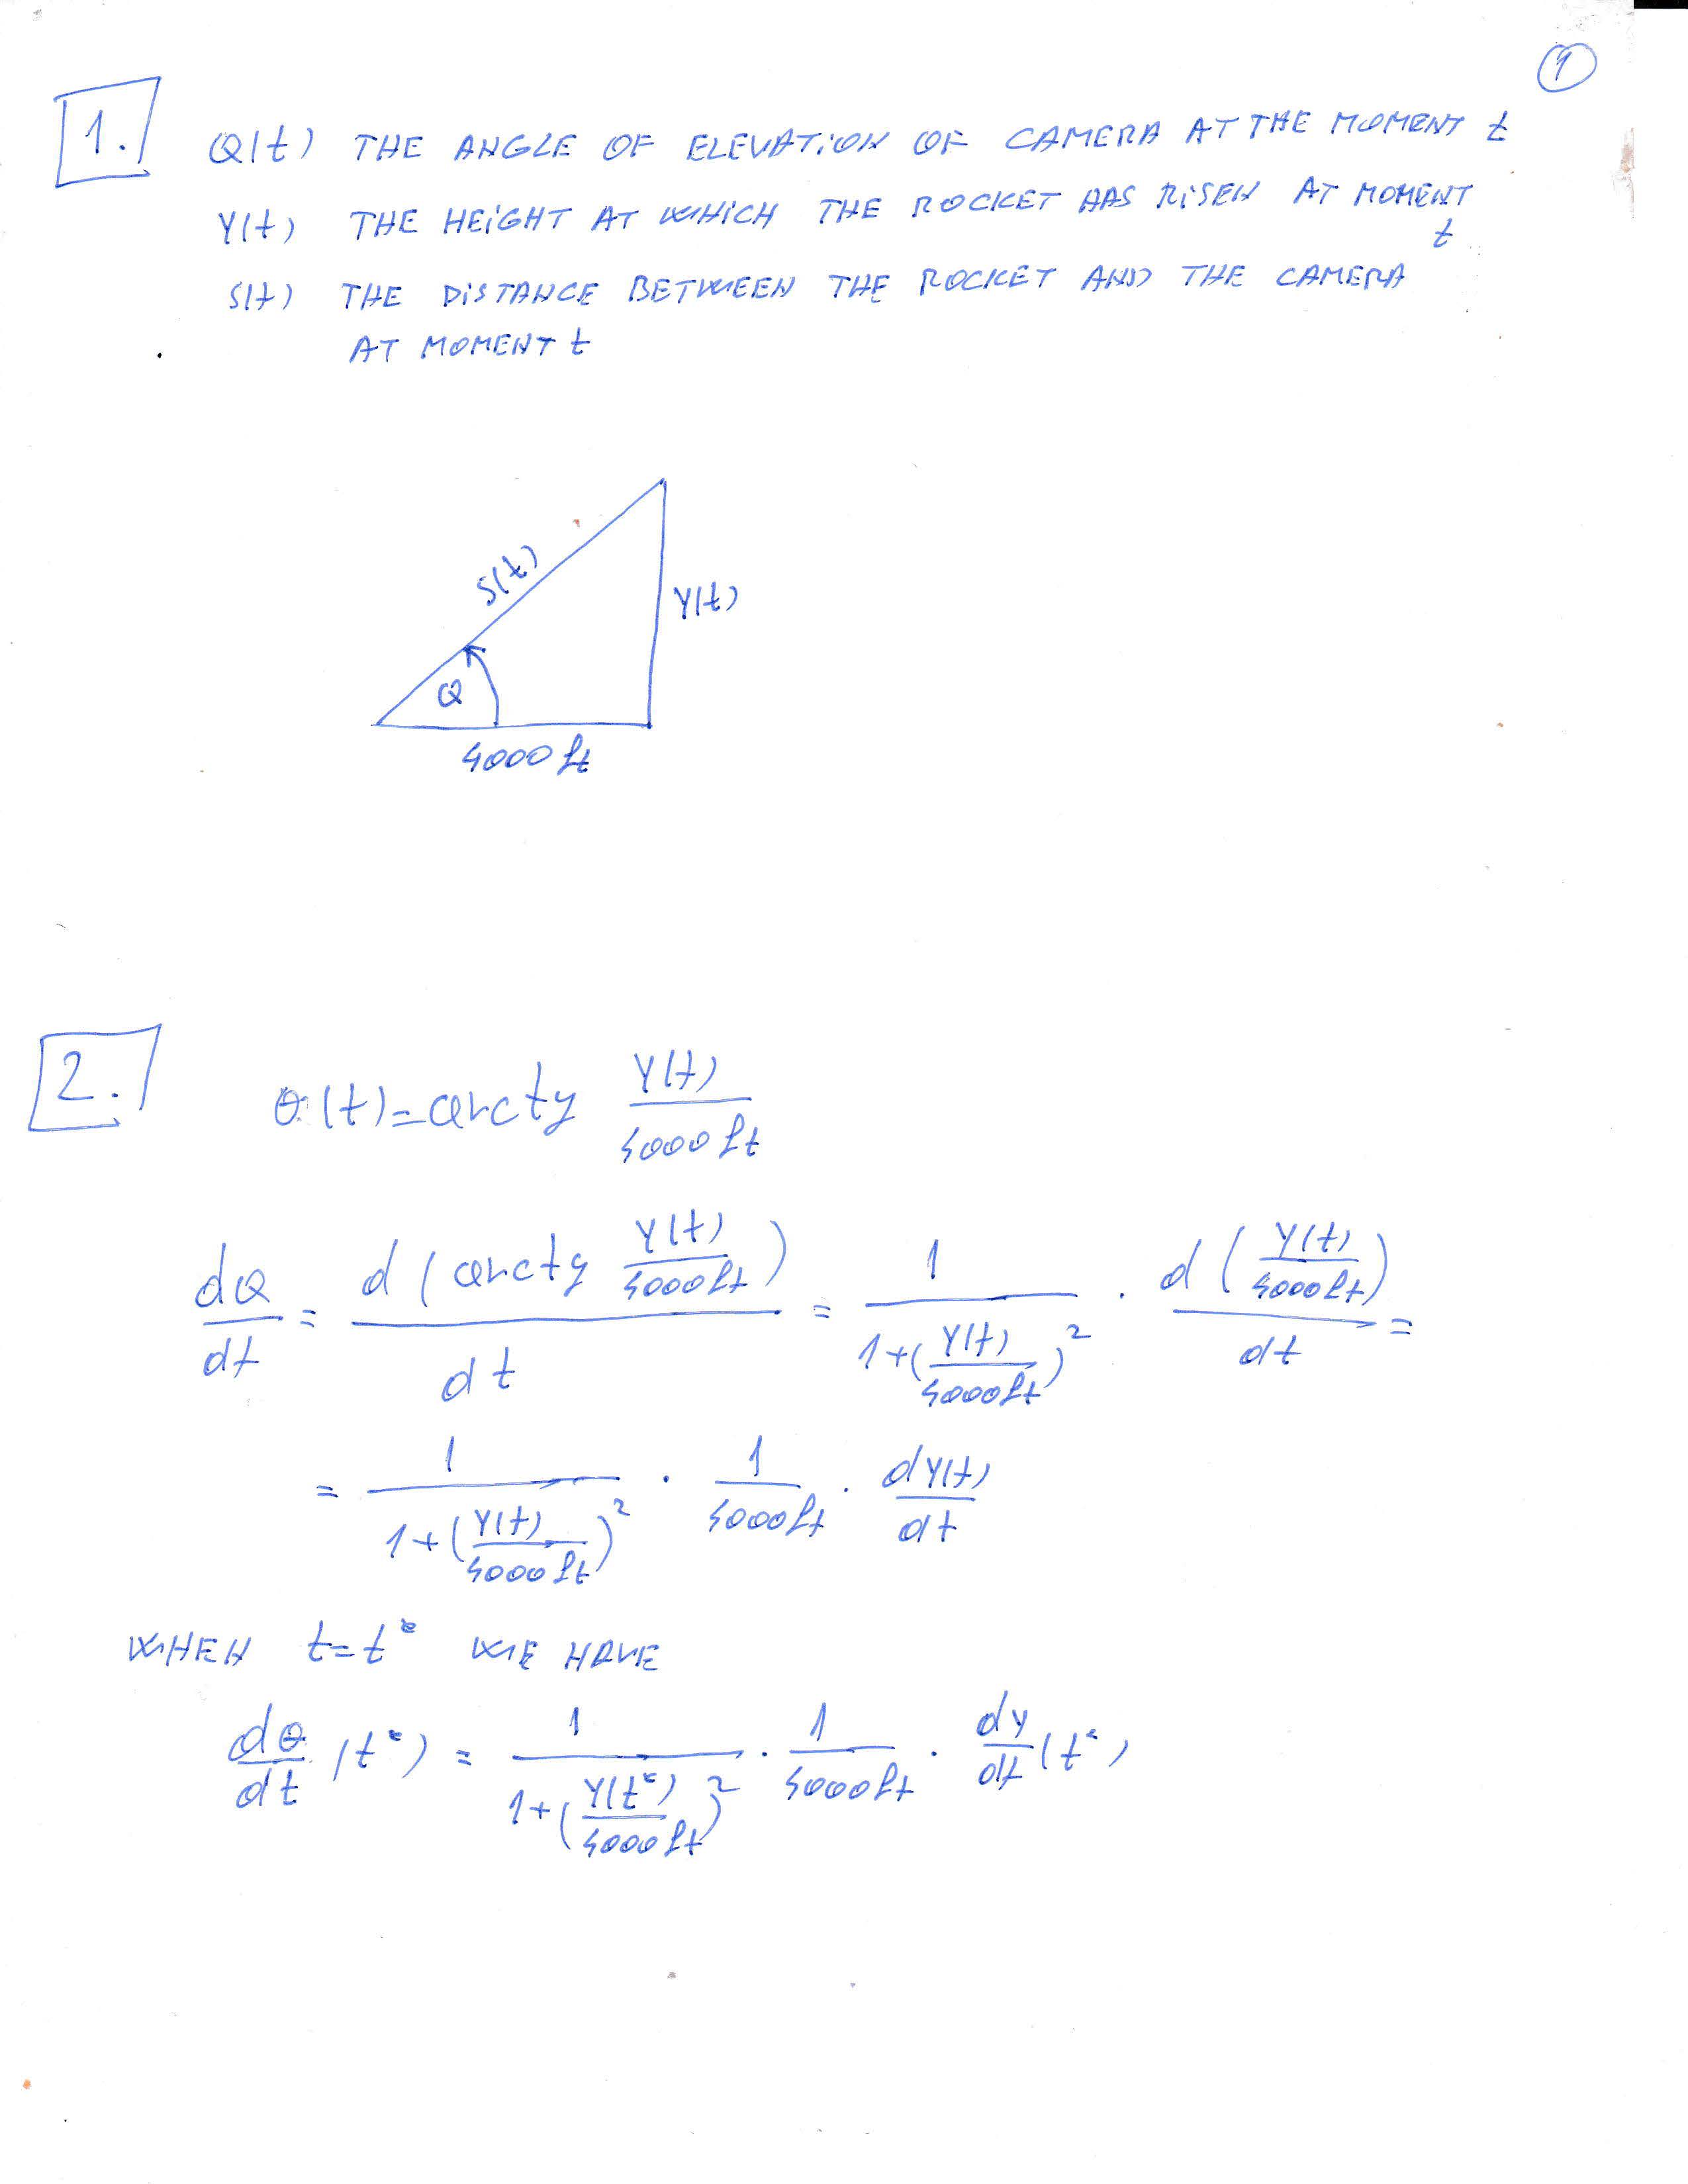 1
1.
Q(t) THE ANGLE OF ELEVATION OF CAMERA AT THE MOMENT t
Y(t) THE HEIGHT AT WHICH THE ROCKET HAS RISEN AT MOMENT
t
S(t) THE DISTANCE BETWEEN THE ROCKET AND THE CAMERA
AT MOMENT t
S(t)
Y(t)
Q
4000 ft
2.
θ(t) = arctg Y(t)/4000 ft
dQ/dt = d(arctg Y(t)/4000 ft)/dt = 1/(1+(Y(t)/4000 ft)²) · d(Y(t)/4000 ft)/dt =
= 1/(1+(Y(t)/4000 ft)²) · 1/4000 ft · dY(t)/dt
WHEN t = t* WE HAVE
dθ/dt (t*) = 1/(1+(Y(t*)/4000 ft)²) · 1/4000 ft · dY/dt (t*)